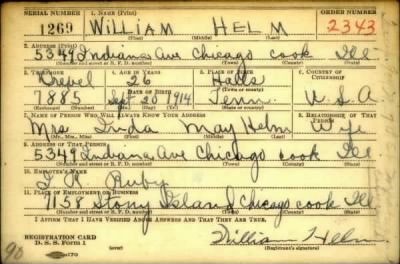 SERIAL NUMBER 1. NAME (Print) ORDER NUMBER
1269 WILLIAM HELM 2343
(First) (Middle) (Last)
2. ADDRESS (Print)
5349 Indiana Ave Chicago Cook Ill
(Number and street or R. F. D. number) (Town) (County) (State)
3. TELEPHONE 4. AGE IN YEARS 5. PLACE OF BIRTH 6. COUNTRY OF CITIZENSHIP
26 Halls
7885 Sept 20 1914 Tenn U.S.A
(Exchange) (Number) (Mo.) (Day) (Yr.) (State or country)
7. NAME OF PERSON WHO WILL ALWAYS KNOW YOUR ADDRESS 8. RELATIONSHIP OF THAT PERSON
Mrs Linda May Helm Wife
(Mr., Mrs., Miss) (First) (Middle) (Last)
9. ADDRESS OF THAT PERSON
5349 Indiana Ave Chicago Cook Ill
(Number and street or R. F. D. number) (Town) (County) (State)
10. EMPLOYER'S NAME
Ruby
11. PLACE OF EMPLOYMENT OR BUSINESS
7158 Stony Island Chicago Cook Ill
(Number and street or R. F. D. number) (Town) (County) (State)
I AFFIRM THAT I HAVE VERIFIED ABOVE ANSWERS AND THAT THEY ARE TRUE.
REGISTRATION CARD
D. S. S. Form 1 William Helm
(Registrant's signature)